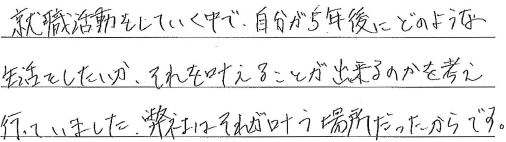 就職活動をしていく中で、自分が5年後にどのような
生活をしたいか、それを叶えることが出来るのかを考え
行っていました。弊社はそれが叶う場所だったからです。